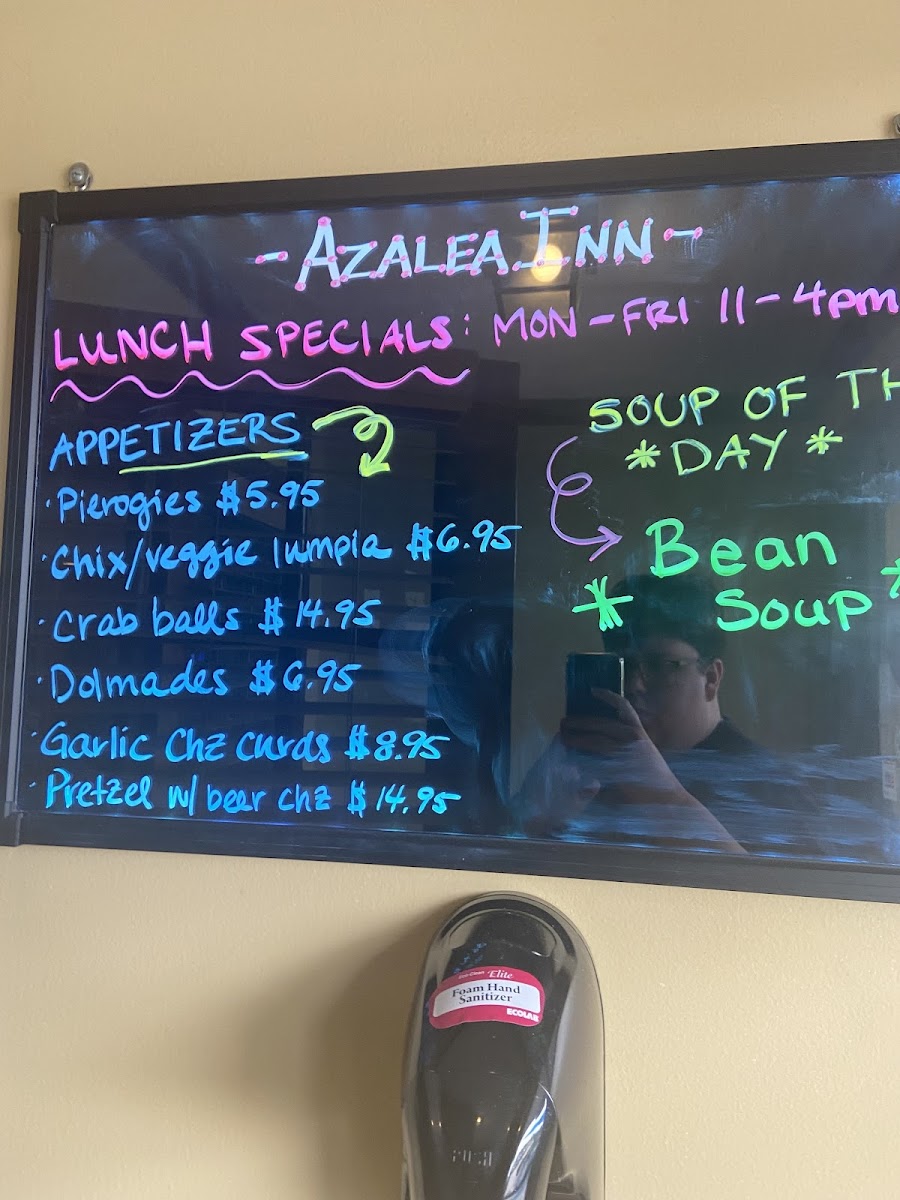 - AZALEA INN -
LUNCH SPECIALS: MON-FRI 11-4pm
APPETIZERS
· Pierogies $5.95
· Chix/veggie lumpia $6.95
· Crab balls $14.95
· Dolmades $6.95
· Garlic Chz curds $8.95
· Pretzel w/ beer chz $14.95
SOUP OF TH
* DAY *
Bean
* Soup *
Elite
Foam Hand
Sanitizer
ECOLAB
PUSH